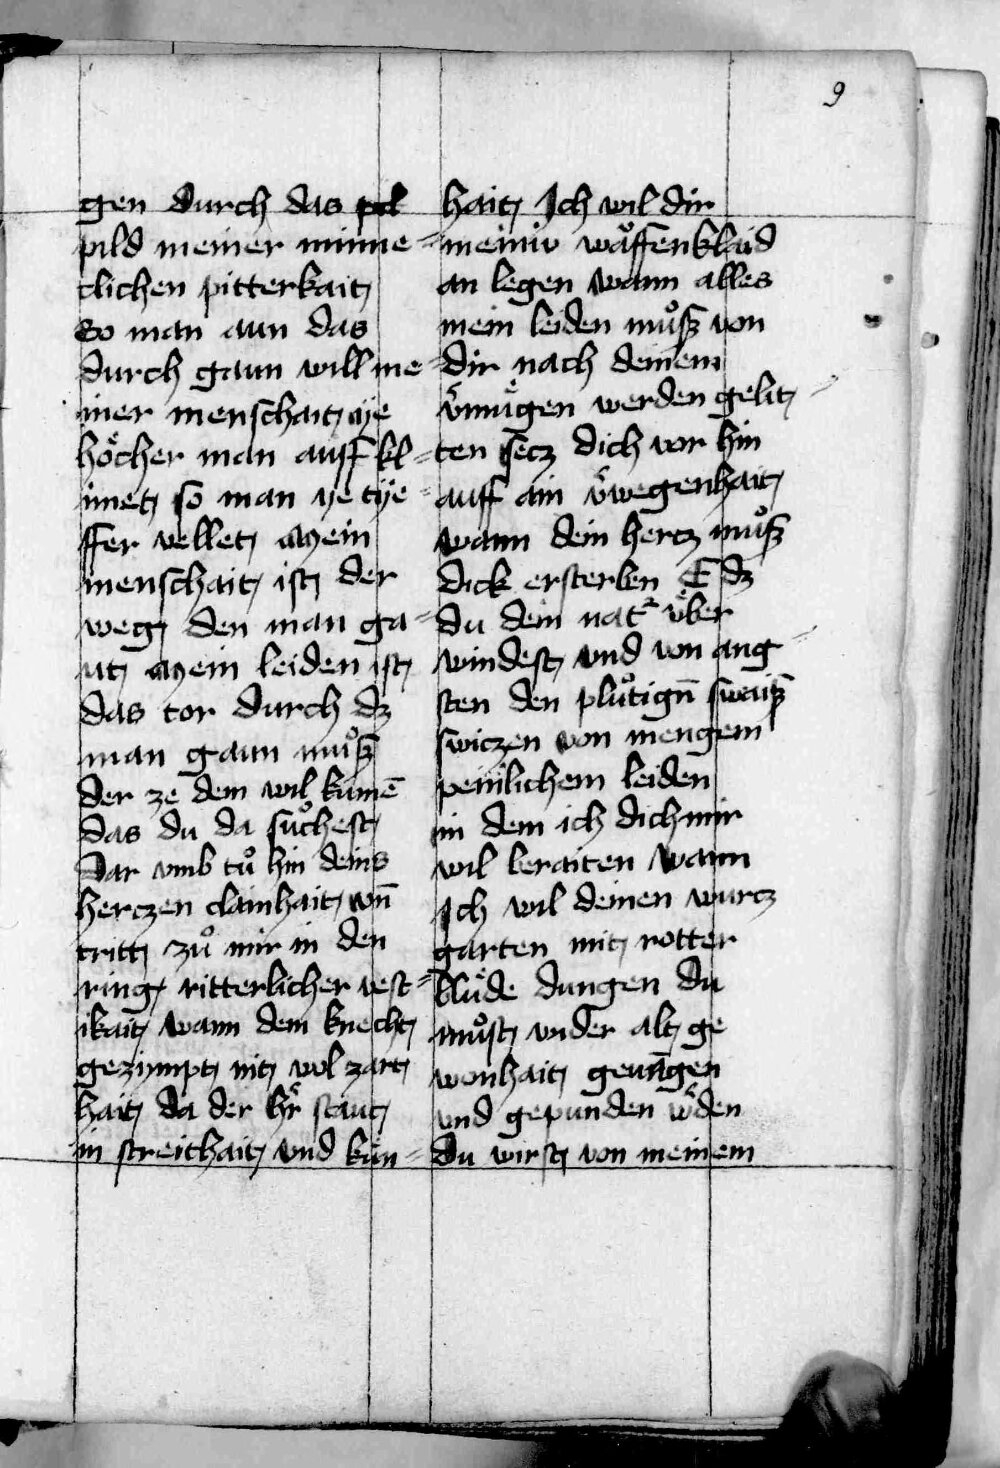 9
gen durch das
pild meiner minne=
clichen pitterkait
So man aun das
durch gaun will me=
iner menschait aye
hoͤcher man auff kl=
imet so man ye tye=
ffer vellet Mein
menschait ist der
weg den man ga=
ut Mein leiden ist
das tor durch dz
man gaun muͦsz
der ze dem wil kumē
das du da suͦchest
Dar vmb tuͦ hin deins
herczen clainhait vn̄
tritt zuͦ mir in den
ring ritterlicher vest=
ikait wann dem knecht
gezimpt nit wol zart
hait da der hr̄ staut
in streithait vnd kün=
hait Ich wil dir
meiniv waͧffenklaid
an legen wann alles
mein leiden muͦsz von
dir nach deinem
v̄muͤgen werden gelit=
ten secz dich vor hin
auff ain v̄wegenhait
wann dein hercz muͦsz
dick ersterben E dz
du dein nat᷑ uͤber
windest vnd von ang=
sten den pluͦtign̄ swaisz
swiczen von mengem
peinlichem leiden
in dem ich dich mir
wil beraiten wann
Ich wil deinen wurcz
garten mit rotter
bluͤde dungen du
muͦst wider alt ge
wonhait geuāngen
vnd gepunden w̄den
Du wirst von meinem